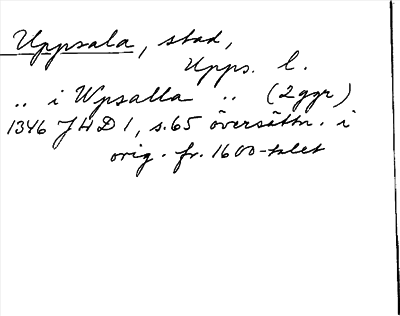 Uppsala, stad,
Upps. l.
.. i Wpsalla .. (2ggr)
1346 JHD 1, s.65 översättn. i
orig. fr. 1600-talet